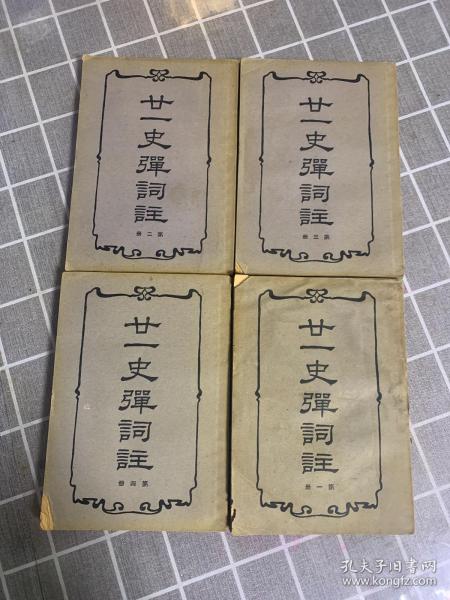 廿一史彈詞註
第二册
廿一史彈詞註
第三册
廿一史彈詞註
第四册
廿一史彈詞註
第一册
孔夫子旧书网
www.kongfz.com